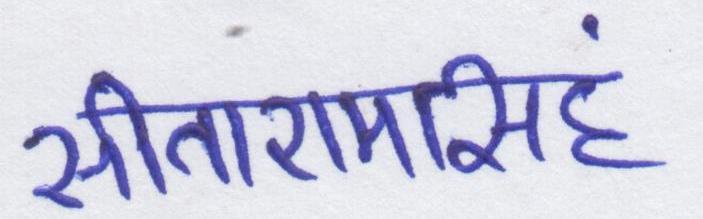 सीतारामसिहं